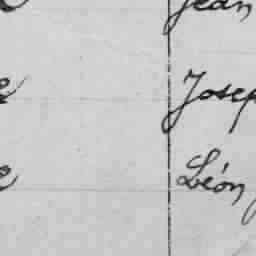 Jean
Josep
Léon